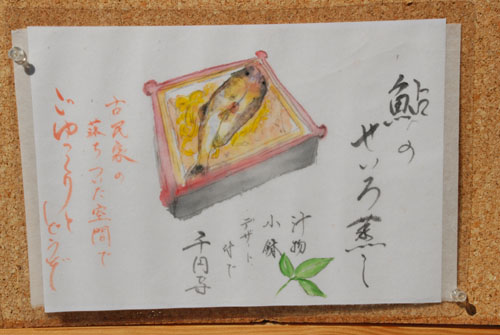 鮎の
せいろ蒸し
汁物
小鉢
デザート
付で
千円
古民家の
落ちついた空間で
ごゆっくりと
どうぞ